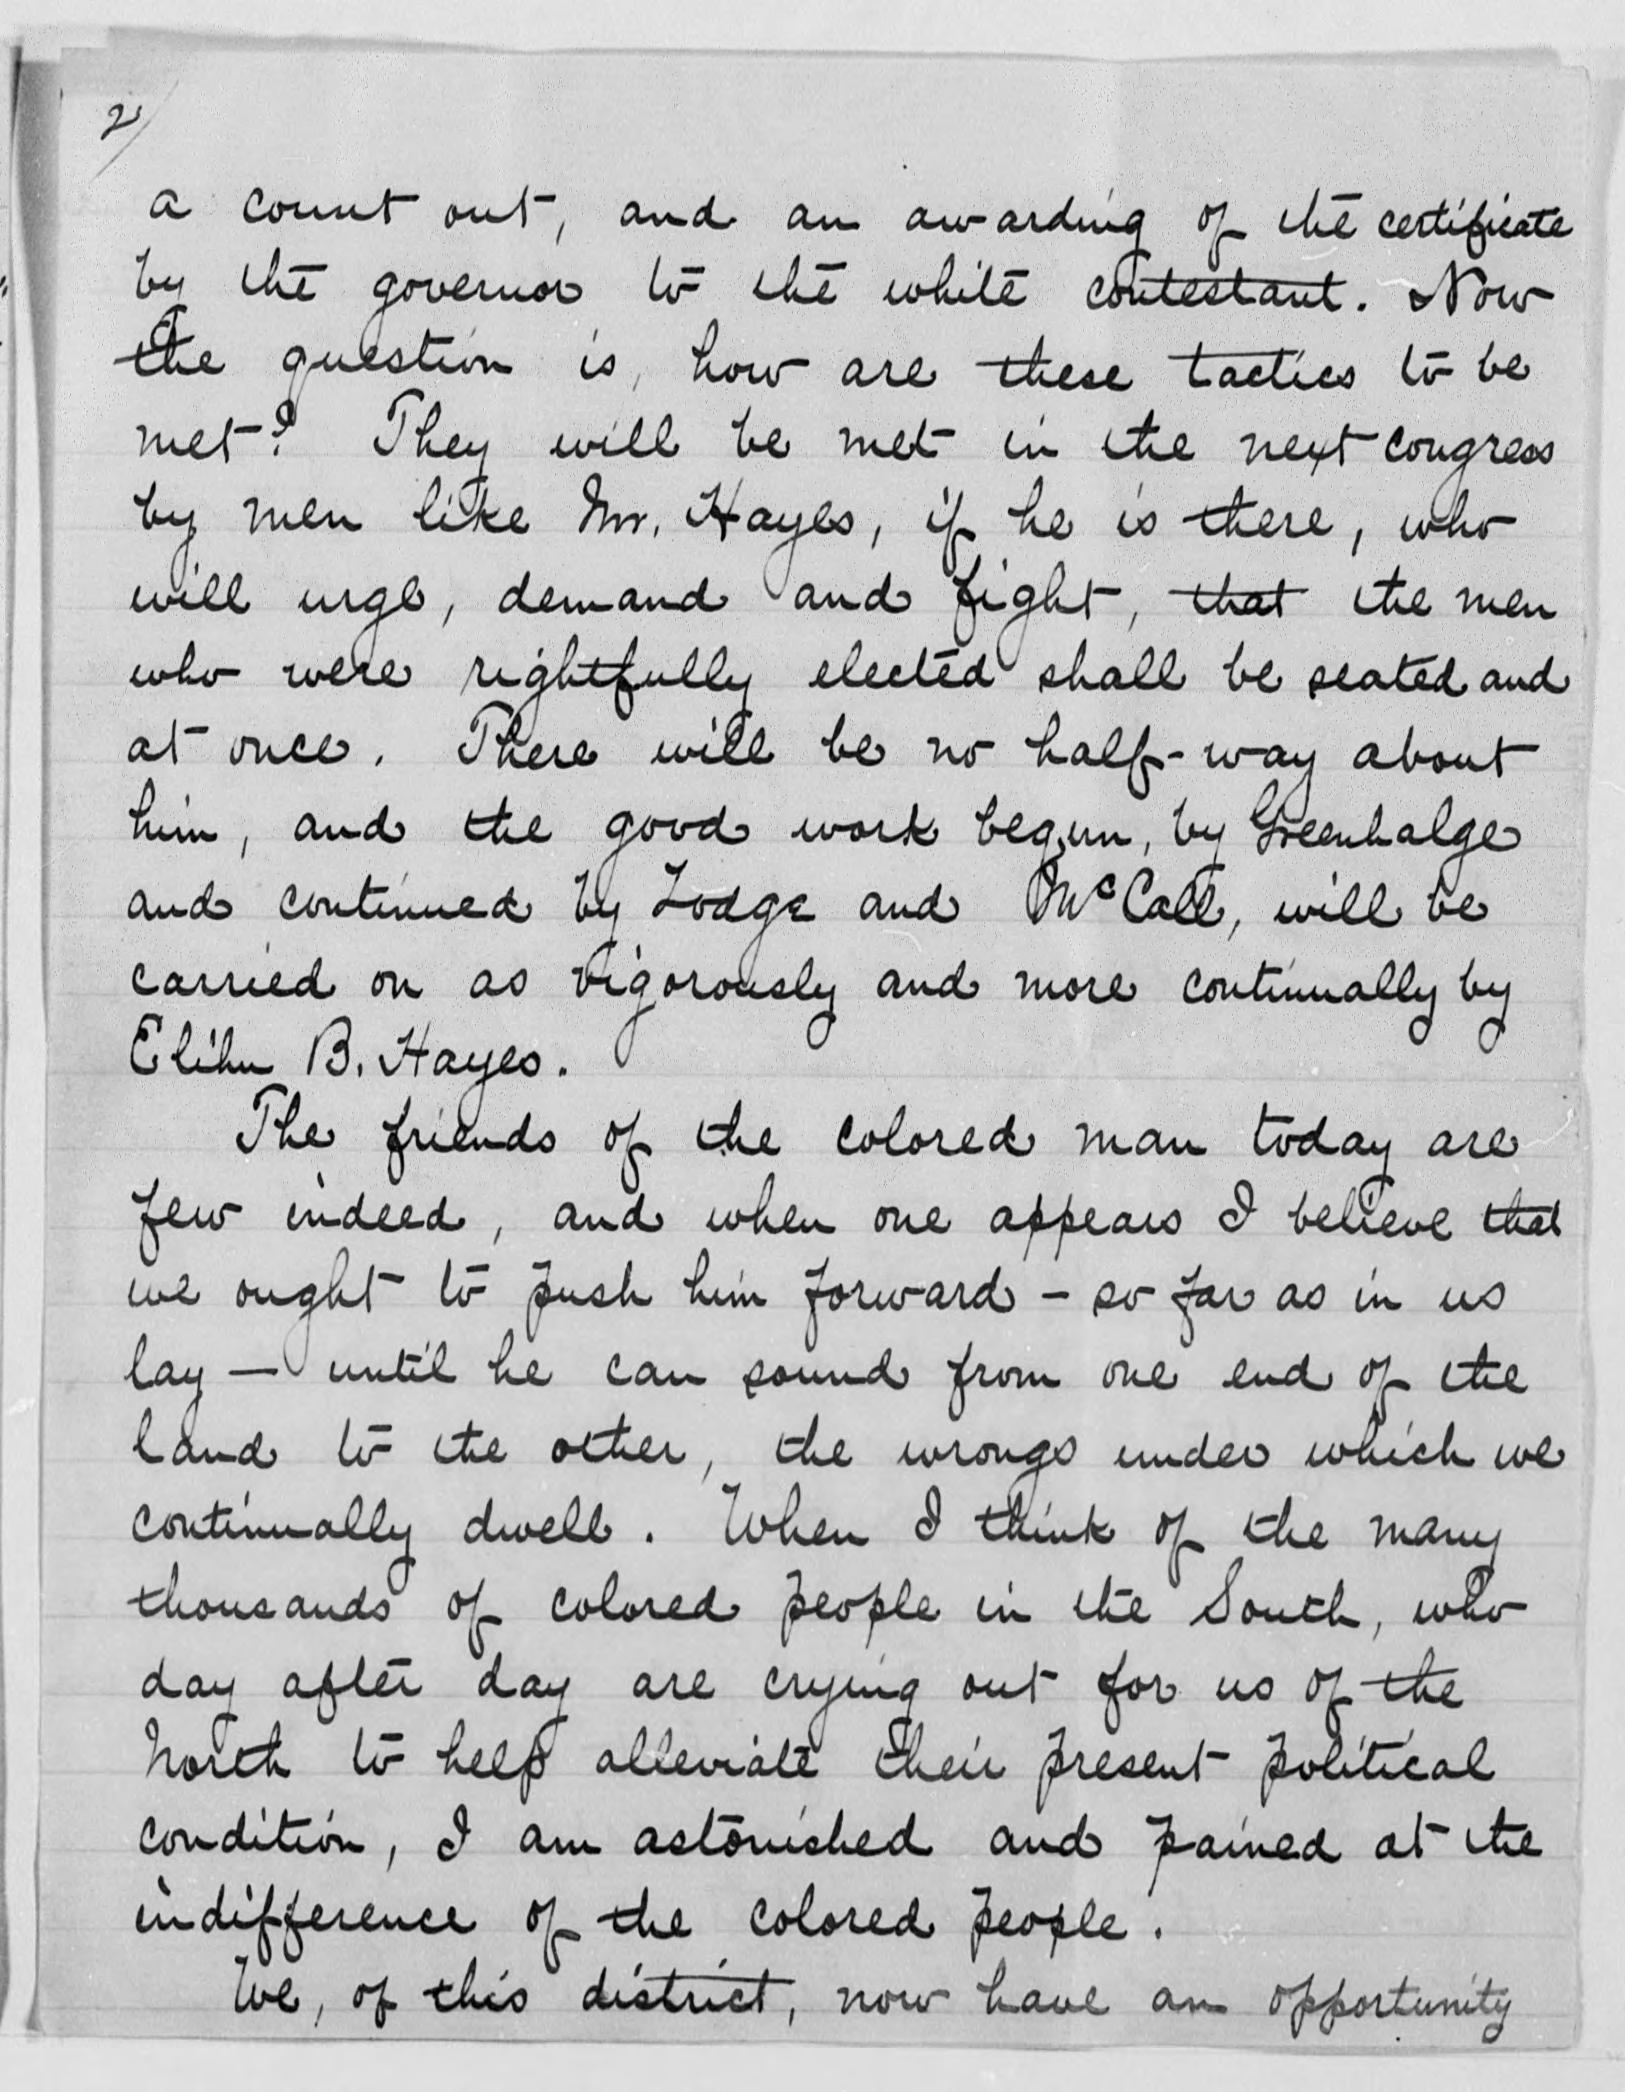 2/
a count out, and an awarding of the certificate
by the governor to the white contestant. Now
the question is, how are these tactics to be
met? They will be met in the next congress
by men like Mr. Hayes, if he is there, who
will urge, demand and fight, that the men
who were rightfully elected shall be seated and
at once. There will be no half-way about
him, and the good work begun, by Greenhalge
and continued by Lodge and McCall, will be
carried on as vigorously and more continually by
Elihu B. Hayes.
The friends of the colored man today are
few indeed, and when one appears I believe that
we ought to push him forward - so far as in us
lay — until he can sound from one end of the
land to the other, the wrongs under which we
continually dwell. When I think of the many
thousands of colored people in the South, who
day after day are crying out for us of the
North to help alleviate their present political
condition, I am astonished and pained at the
indifference of the colored people.
We, of this district, now have an opportunity